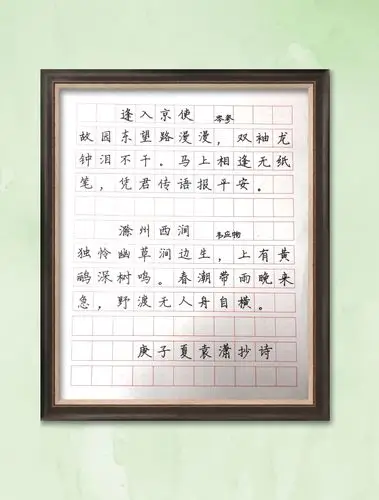 逢入京使 岑参
故园东望路漫漫，双袖龙
钟泪不干。马上相逢无纸
笔，凭君传语报平安。
滁州西涧 韦应物
独怜幽草涧边生，上有黄
鹂深树鸣。春潮带雨晚来
急，野渡无人舟自横。
庚子夏袁潇抄诗